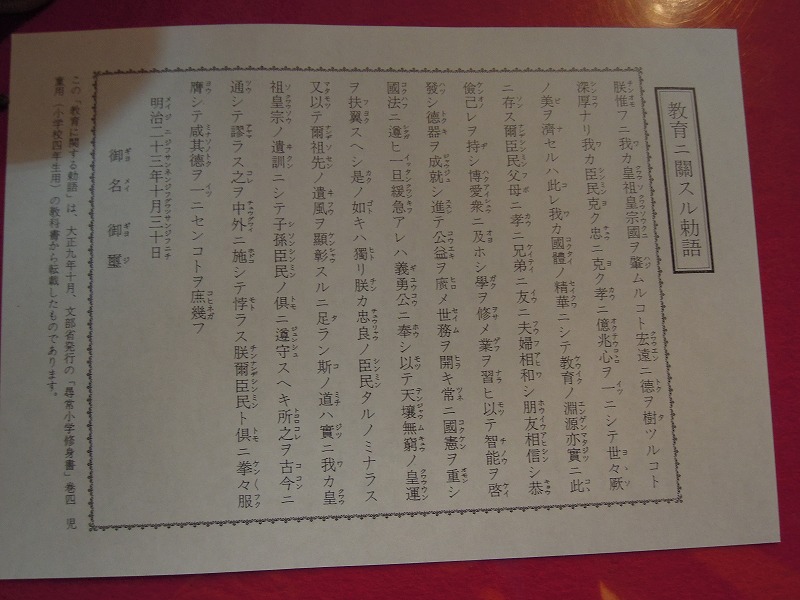 教育ニ關スル勅語
朕惟フニ我カ皇祖皇宗國ヲ肇ムルコト宏遠ニ德ヲ樹ツルコト
深厚ナリ我カ臣民克ク忠ニ克ク孝ニ億兆心ヲ一ニシテ世々厥
ノ美ヲ濟セルハ此レ我カ國體ノ精華ニシテ教育ノ淵源亦實ニ此
ニ存ス爾臣民父母ニ孝ニ兄弟ニ友ニ夫婦相和シ朋友相信シ恭
儉己レヲ持シ博愛衆ニ及ホシ學ヲ修メ業ヲ習ヒ以テ智能ヲ啓
發シ德器ヲ成就シ進テ公益ヲ廣メ世務ヲ開キ常ニ國憲ヲ重シ
國法ニ遵ヒ一旦緩急アレハ義勇公ニ奉シ以テ天壤無窮ノ皇運
ヲ扶翼スヘシ是ノ如キハ獨リ朕カ忠良ノ臣民タルノミナラス
又以テ爾祖先ノ遺風ヲ顯彰スルニ足ラン斯ノ道ハ實ニ我カ皇
祖皇宗ノ遺訓ニシテ子孫臣民ノ俱ニ遵守スヘキ所之ヲ古今ニ
通シテ謬ラス之ヲ中外ニ施シテ悖ラス朕爾臣民ト俱ニ拳々服
膺シテ咸其德ヲ一ニセンコトヲ庶幾フ
明治二十三年十月三十日
御名御璽
この「教育に関する勅語」は、大正九年十月、文部省発行の「尋常小学修身書」巻四　児
童用（小学校四年生用）の教科書から転載したものであります。